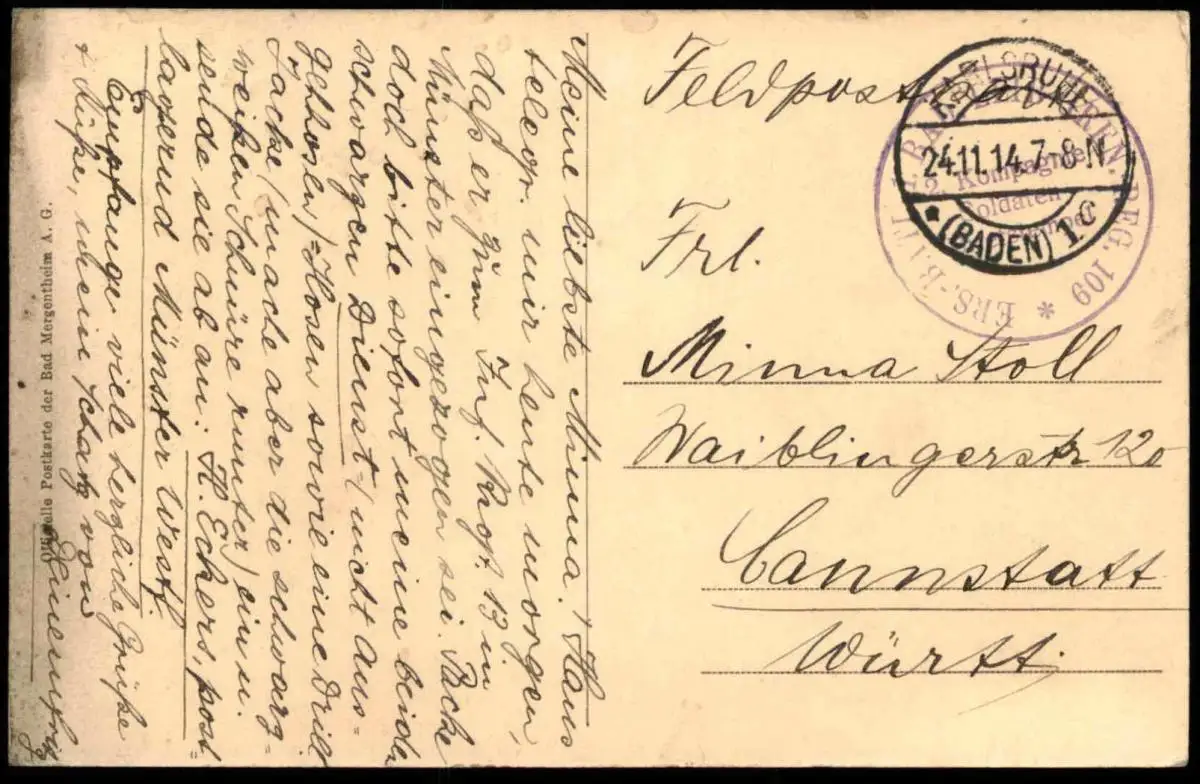 Meine liebste Minna! Hans
telegr. mir heute morgen,
daß er zum Inf. Rgt. 13 in
Münster eingezogen sei. Packe
doch bitte sofort meine beiden
schwarzen Dienst (nicht Aus-
gehhosen)=Hosen sowie eine Drill
Jacke (mache aber die schwarz-
weißen Schnüre runter) ein u.
sende sie ab an: H. Eckers, post-
lagernd Münster West.
Empfange viele herzliche Grüße
+ Küsse, mein Schatz von
Deinem
Offizielle Postkarte der Bad Mergentheim A. G.
Feldpost
KARLSRUHE
24.11.14. 7-8 N
* (BADEN) 1. C
ERS.-BATL. 1. BAD. LEIB-GREN. REG. 109 *
2. Kompagnie
Soldaten
Frl.
Minna Stoll
Waiblingerstr 120
Cannstatt
Württ.